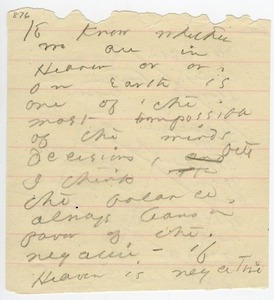 876
To know whether
we are in
Heaven or
on Earth is
one of the
most impossible
of the minds
decisions, but
I think
the balance
always leans in
favor of the
negative - if
Heaven is negative